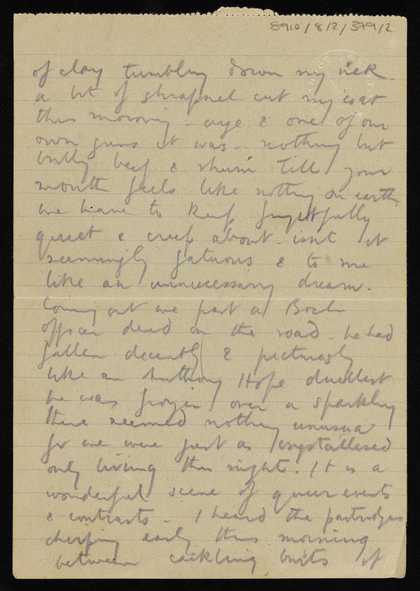 8910/8/2/399/2
of clay tumbling down my neck.
a bit of shrapnel cut my coat
this morning - & one of our
own guns it was - nothing but
bully beef & till your
mouth feels like nothing on earth
we have to keep frightfully
quiet & creep about - isnt it
seemingly fatuous & to me
like an unnecessary dream.
Coming out we past a Boch
officer dead on the road - he had
fallen decently & picturesly
like an Anthony Hope duellist
he was frozen over & sparkling
there seemed nothing unusual
for we were just as crystallised
only living this night. It is a
wonderful scene of queer events
& contrasts - I heard the partridges
chirping early this morning
between cackling bursts of